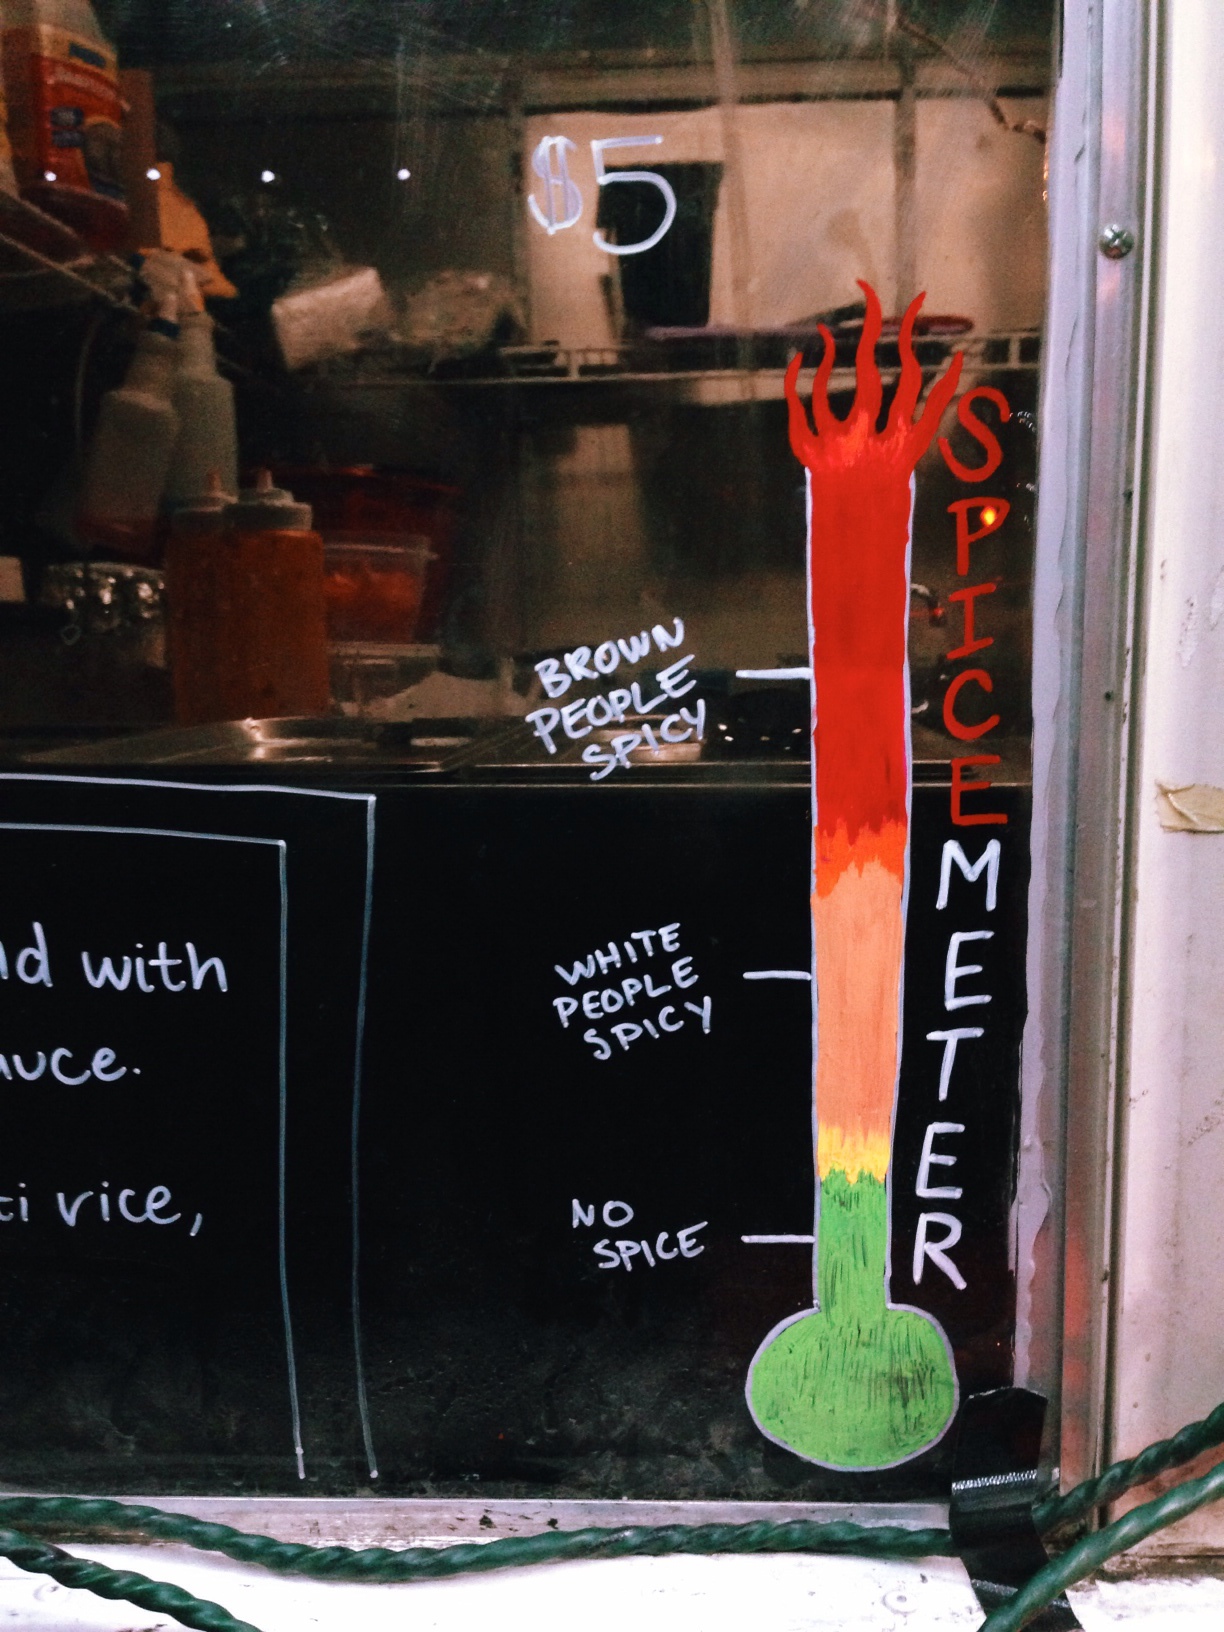 $5
SPICEMETER
BROWN
PEOPLE
SPICY
WHITE
PEOPLE
SPICY
NO
SPICE
with
rice,